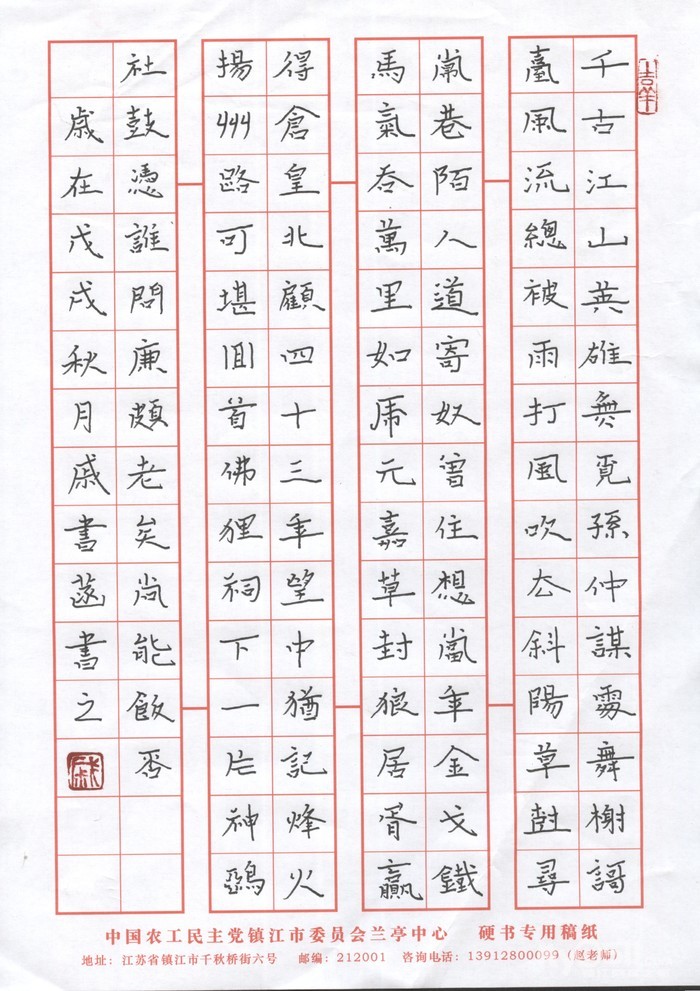 千古江山英雄無覓孫仲謀處舞榭謌
臺風流總被雨打風吹去斜陽草尌尋
常巷陌人道寄奴曾住想當年金戈鐵
馬氣吞萬里如虎元嘉草封狼居胥贏
得倉皇北顧四十三年望中猶記烽火
揚州路可堪回首佛狸祠下一片神鴉
社鼓憑誰問廉頗老矣尚能飯否
歲在戊戌秋月戚書菡書之
吉羊
戚
中国农工民主党镇江市委员会兰亭中心 硬书专用稿纸
地址：江苏省镇江市千秋桥街六号 邮编：212001 咨询电话：13912800099（赵老师）